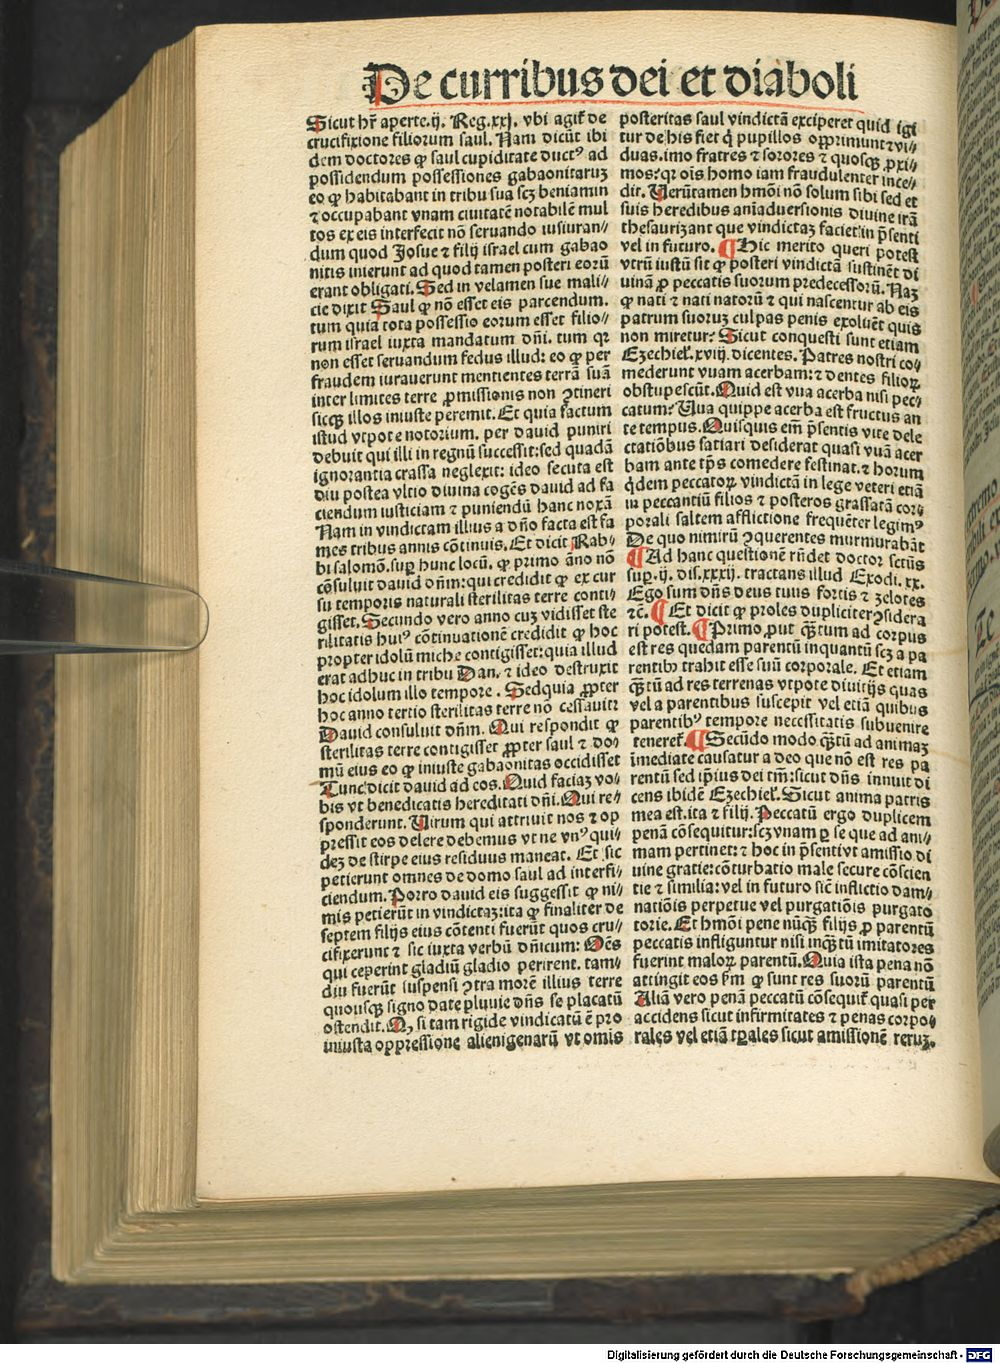 De curribus dei et diaboli
Sicut hr̃ aperte.ij. Reg.xxj. vbi agit̃ de
crucifixione filiorum saul. Nam dicũt ibi
dem doctores ꝙ saul cupiditate ductꝰ ad
possidendum possessiones gabaonitaruꝫ
eo ꝙ habitabant in tribu sua scꝫ beniamin
⁊ occupabant vnam ciuitatẽ notabilẽ mul
tos ex eis interfecit nõ seruando iusiuran⸗
dum quod Josue ⁊ filij israel cum gabao
nitis inierunt ad quod tamen posteri eorũ
erant obligati. Sed in velamen sue mali⸗
cie dixit Saul ꝙ nõ esset eis parcendum.
tum quia tota possessio eorum esset filio⸗
rum israel iuxta mandatum dñi. tum qꝛ
non esset seruandum fedus illud: eo ꝙ per
fraudem iurauerunt mentientes terrã suã
inter limites terre ꝓmissionis non ꝯtineri
sicqꝫ illos iniuste peremit. Et quia factum
istud vtpote notorium. per dauid puniri
debuit qui illi in regnũ successit: sed quadã
ignorantia crassa neglexit: ideo secuta est
diu postea vltio diuina cogẽs dauid ad fa
ciendum iusticiam ⁊ puniendũ hanc noxã
Nam in vindictam illius a dño facta est fa
mes tribus annis cõtinuis. Et dicit Rab⸗
bi salomõ. suꝑ hunc locũ. ꝙ primo ãno nõ
cõsuluit dauid dñm: qui credidit ꝙ ex cur
su temporis naturali sterilitas terre conti⸗
gisset. Secundo vero anno cuꝫ vidisset ste
rilitatis huiꝰ cõtinuationẽ credidit ꝙ hoc
propter idolũ miche contigisset: quia illud
erat adhuc in tribu Dan. ⁊ ideo destruxit
hoc idolum illo tempore. Sed quia ꝓpter
hoc anno tertio sterilitas terre nõ cessauit:
Dauid consuluit dñm. Qui respondit ꝙ
sterilitas terre contigisset ꝓpter saul ⁊ do⸗
mũ eius eo ꝙ iniuste gabaonitas occidisset
Tunc dicit dauid ad eos. Quid faciaꝫ vo⸗
bis vt benedicatis hereditati dñi. Qui re⸗
sponderunt. Uirum qui attriuit nos ⁊ op
pressit eos delere debemus vt ne vnꝰ qui⸗
deꝫ de stirpe eius residuus maneat. Et sic
petierunt omnes de domo saul ad interfi⸗
ciendum. Porro dauid eis suggessit ꝙ ni⸗
mis petierũt in vindictaꝫ: ita ꝙ finaliter de
septem filijs eius cõtenti fuerũt quos cru⸗
cifixerunt ⁊ sic iuxta verbũ dñicum: Oẽs
qui ceperint gladiũ gladio perirent. tam⸗
diu fuerũt suspensi ꝯtra morẽ illius terre
quousqꝫ signo date pluuie dñs se placatũ
ostendit. Q, si tam rigide vindicatũ ẽ pro
iniusta oppressione alienigenarũ vt omis
posteritas saul vindictã exciperet quid igi
tur de his fiet q̃ pupillos opprimunt ⁊ vi⸗
duas. imo fratres ⁊ sorores ⁊ quosqꝫ ꝓxi⸗
mos? qꝛ oĩs homo iam fraudulenter ince⸗
dit. Uerũtamen hmõi nõ solum sibi sed et
suis heredibus aĩaduersionis diuine irã
thesaurizant que vindictaꝫ faciet: in p̃senti
vel in futuro. ¶ Hic merito queri potest
vtrũ iustũ sit ꝙ posteri vindictã sustinẽt di
uinã ꝓ peccatis suorum predecessorũ. Naꝫ
ꝙ nati ⁊ nati natorũ ⁊ qui nascentur ab eis
patrum suoruꝫ culpas penis exoluẽt quis
non miretur? Sicut conquesti sunt etiam
Ezechiel̃.xviij. dicentes. Patres nostri co⸗
mederunt vuam acerbam: ⁊ dentes filioꝝ
obstupescũt. Quid est vua acerba nisi pec⸗
catum? Uua quippe acerba est fructus an
te tempus. Quisquis em̃ p̃sentis vite dele
ctatiõbus satiari desiderat quasi vuã acer
bam ante tp̃s comedere festinat. ⁊ horum
q̃dem peccatoꝝ vindictã in lege veteri etiã
in peccantiũ filios ⁊ posteros grassatã cor⸗
porali saltem afflictione frequẽter legimꝰ
De quo nimirũ ꝯquerentes murmurabãt
¶ Ad hanc questionẽ rñdet doctor sctũs
suꝑ.ij. dis.xxxij. tractans illud Exodi. xx.
Ego sum dñs deus tuus fortis ⁊ zelotes
⁊c̃. ¶ Et dicit ꝙ proles dupliciter ꝯsidera
ri potest. ¶ Primo, put q̃tum ad corpus
est res quedam parentũ inquantũ scꝫ a pa
rentibꝰ trahit esse suũ corporale. Et etiam
q̃tũ ad res terrenas vtpote diuitijs quas
vel a parentibus suscepit vel etiã quibus
parentibꝰ tempore necessitatis subuenire
teneret̃. ¶ Secũdo modo q̃tũ ad animaꝫ
ĩmediate causatur a deo que nõ est res pa
rentũ sed ip̃ius dei tm̃: sicut dñs innuit di
cens ibidẽ Ezechiel̃. Sicut anima patris
mea est. ita ⁊ filij. Peccatũ ergo duplicem
penã cõsequitur: scꝫ vnam ꝑ se que ad ani⸗
mam pertinet: ⁊ hoc in p̃senti vt amissio di
uine gratie: cõturbatio male secure cõscien
tie ⁊ similia: vel in futuro sic̃ inflictio dam⸗
natiõis perpetue vel purgatiõis purgato
torie. Et hmõi pene nũqꝫ filijs ꝓ parentũ
peccatis infliguntur nisi inq̃tũ imitatores
fuerint maloꝝ parentũ. Quia ista pena nõ
attingit eos ẜm ꝙ sunt res suorũ parentũ
Aliã vero penã peccatũ cõsequit̃ quasi per
accidens sicut infirmitates ⁊ penas corpo⸗
rales vel etiã tꝑales sicut amissionẽ reruꝫ.
Digitalisierung gefördert durch die Deutsche Forschungsgemeinschaft - DFG